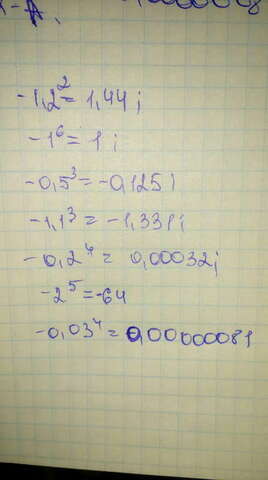 -1,2² = 1,44;
-1⁶ = 1;
-0,5³ = -0,125;
-1,1³ = -1,331;
-0,2⁴ = 0,00032;
-2⁵ = -64
-0,03⁴ = 0,00000081